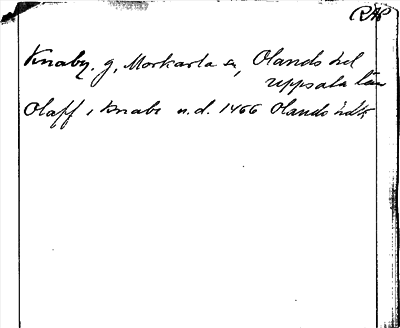 RAP
Knaby. g, Morkarla sn, Olands hd
Uppsala län
Olaff i Knabe n.d. 1466 Olands hdr